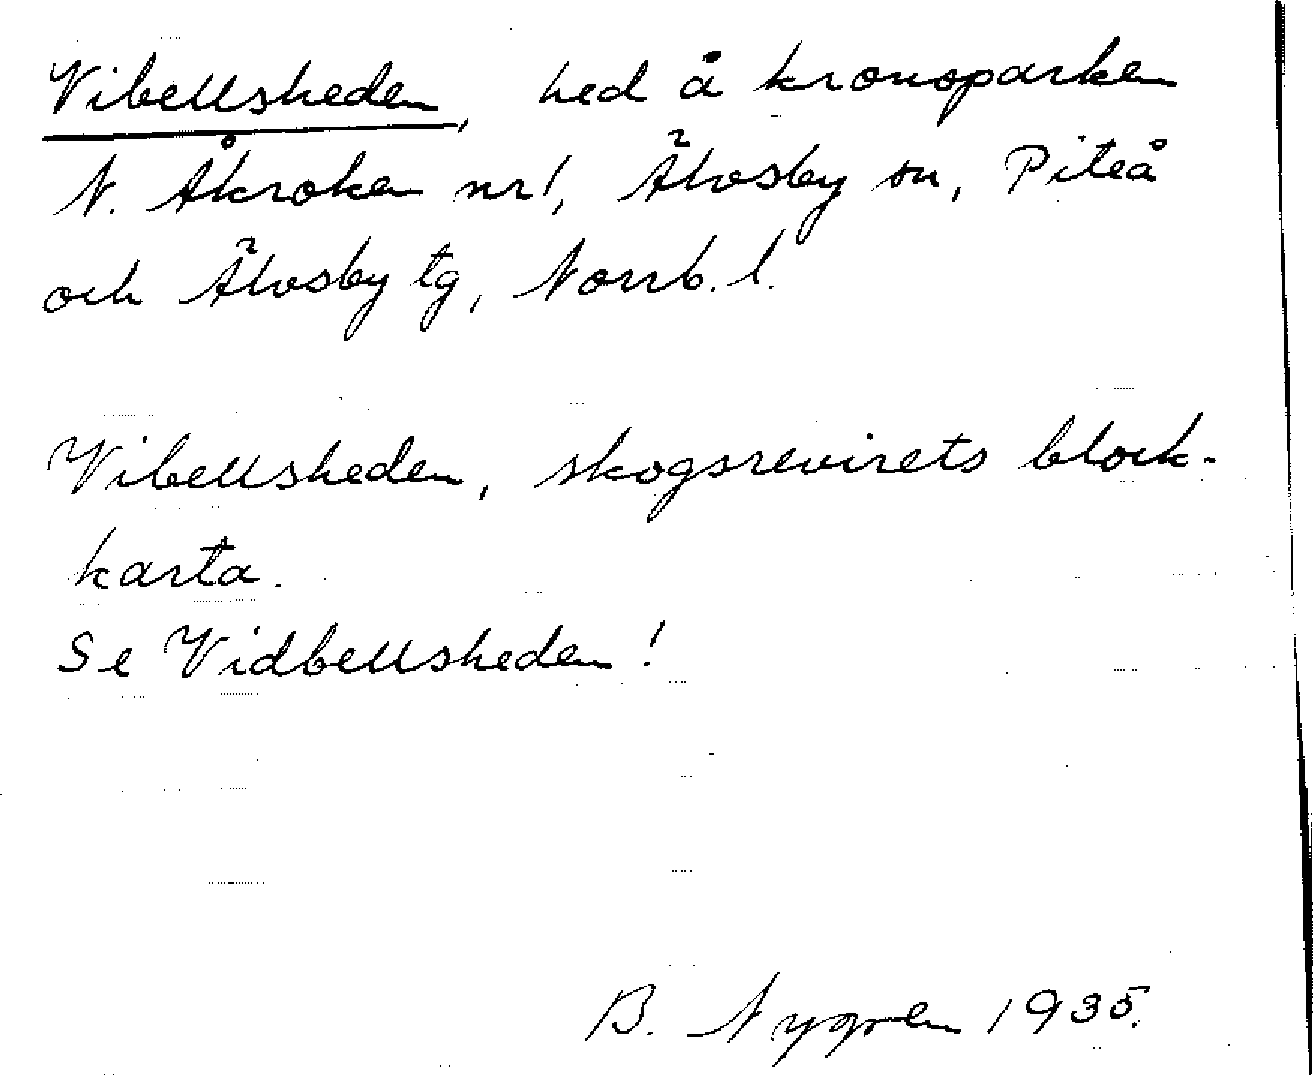 Vibellsheden, hed å kronoparken
N. Åkroken nr 1, Älvsby sn, Piteå
och Älvsby tg, Norrb. l.
Vibellsheden, skogsrevirets block-
karta.
Se Vidbellsheden!
B. Nygren 1935.